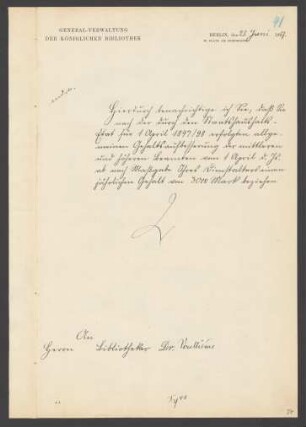 41
GENERAL-VERWALTUNG
DER KÖNIGLICHEN BIBLIOTHEK
BERLIN, den 23 Juni 1897.
Hierdurch benachrichtige ich Sie, daß Sie
nach der durch den Staatshaushalts-
Etat für 1 April 1897/98 erfolgten allge-
meinen Gehaltsaufbesserung der mittleren
und höheren Beamten vom 1 April d. Js.
ab nach Maßgabe Ihres Dienstalters einen
jährlichen Gehalt von 3000 Mark beziehen
An
Herrn Bibliothekar Dr.